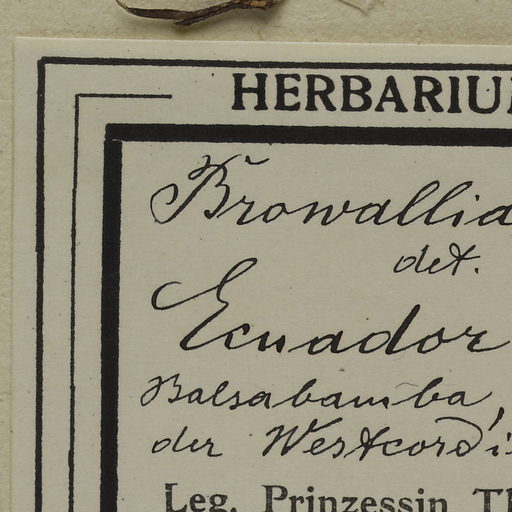 HERBARIU
Browallia
det.
Ecuador
Balsabamba,
der Westcordi
Leg. Prinzessin Th